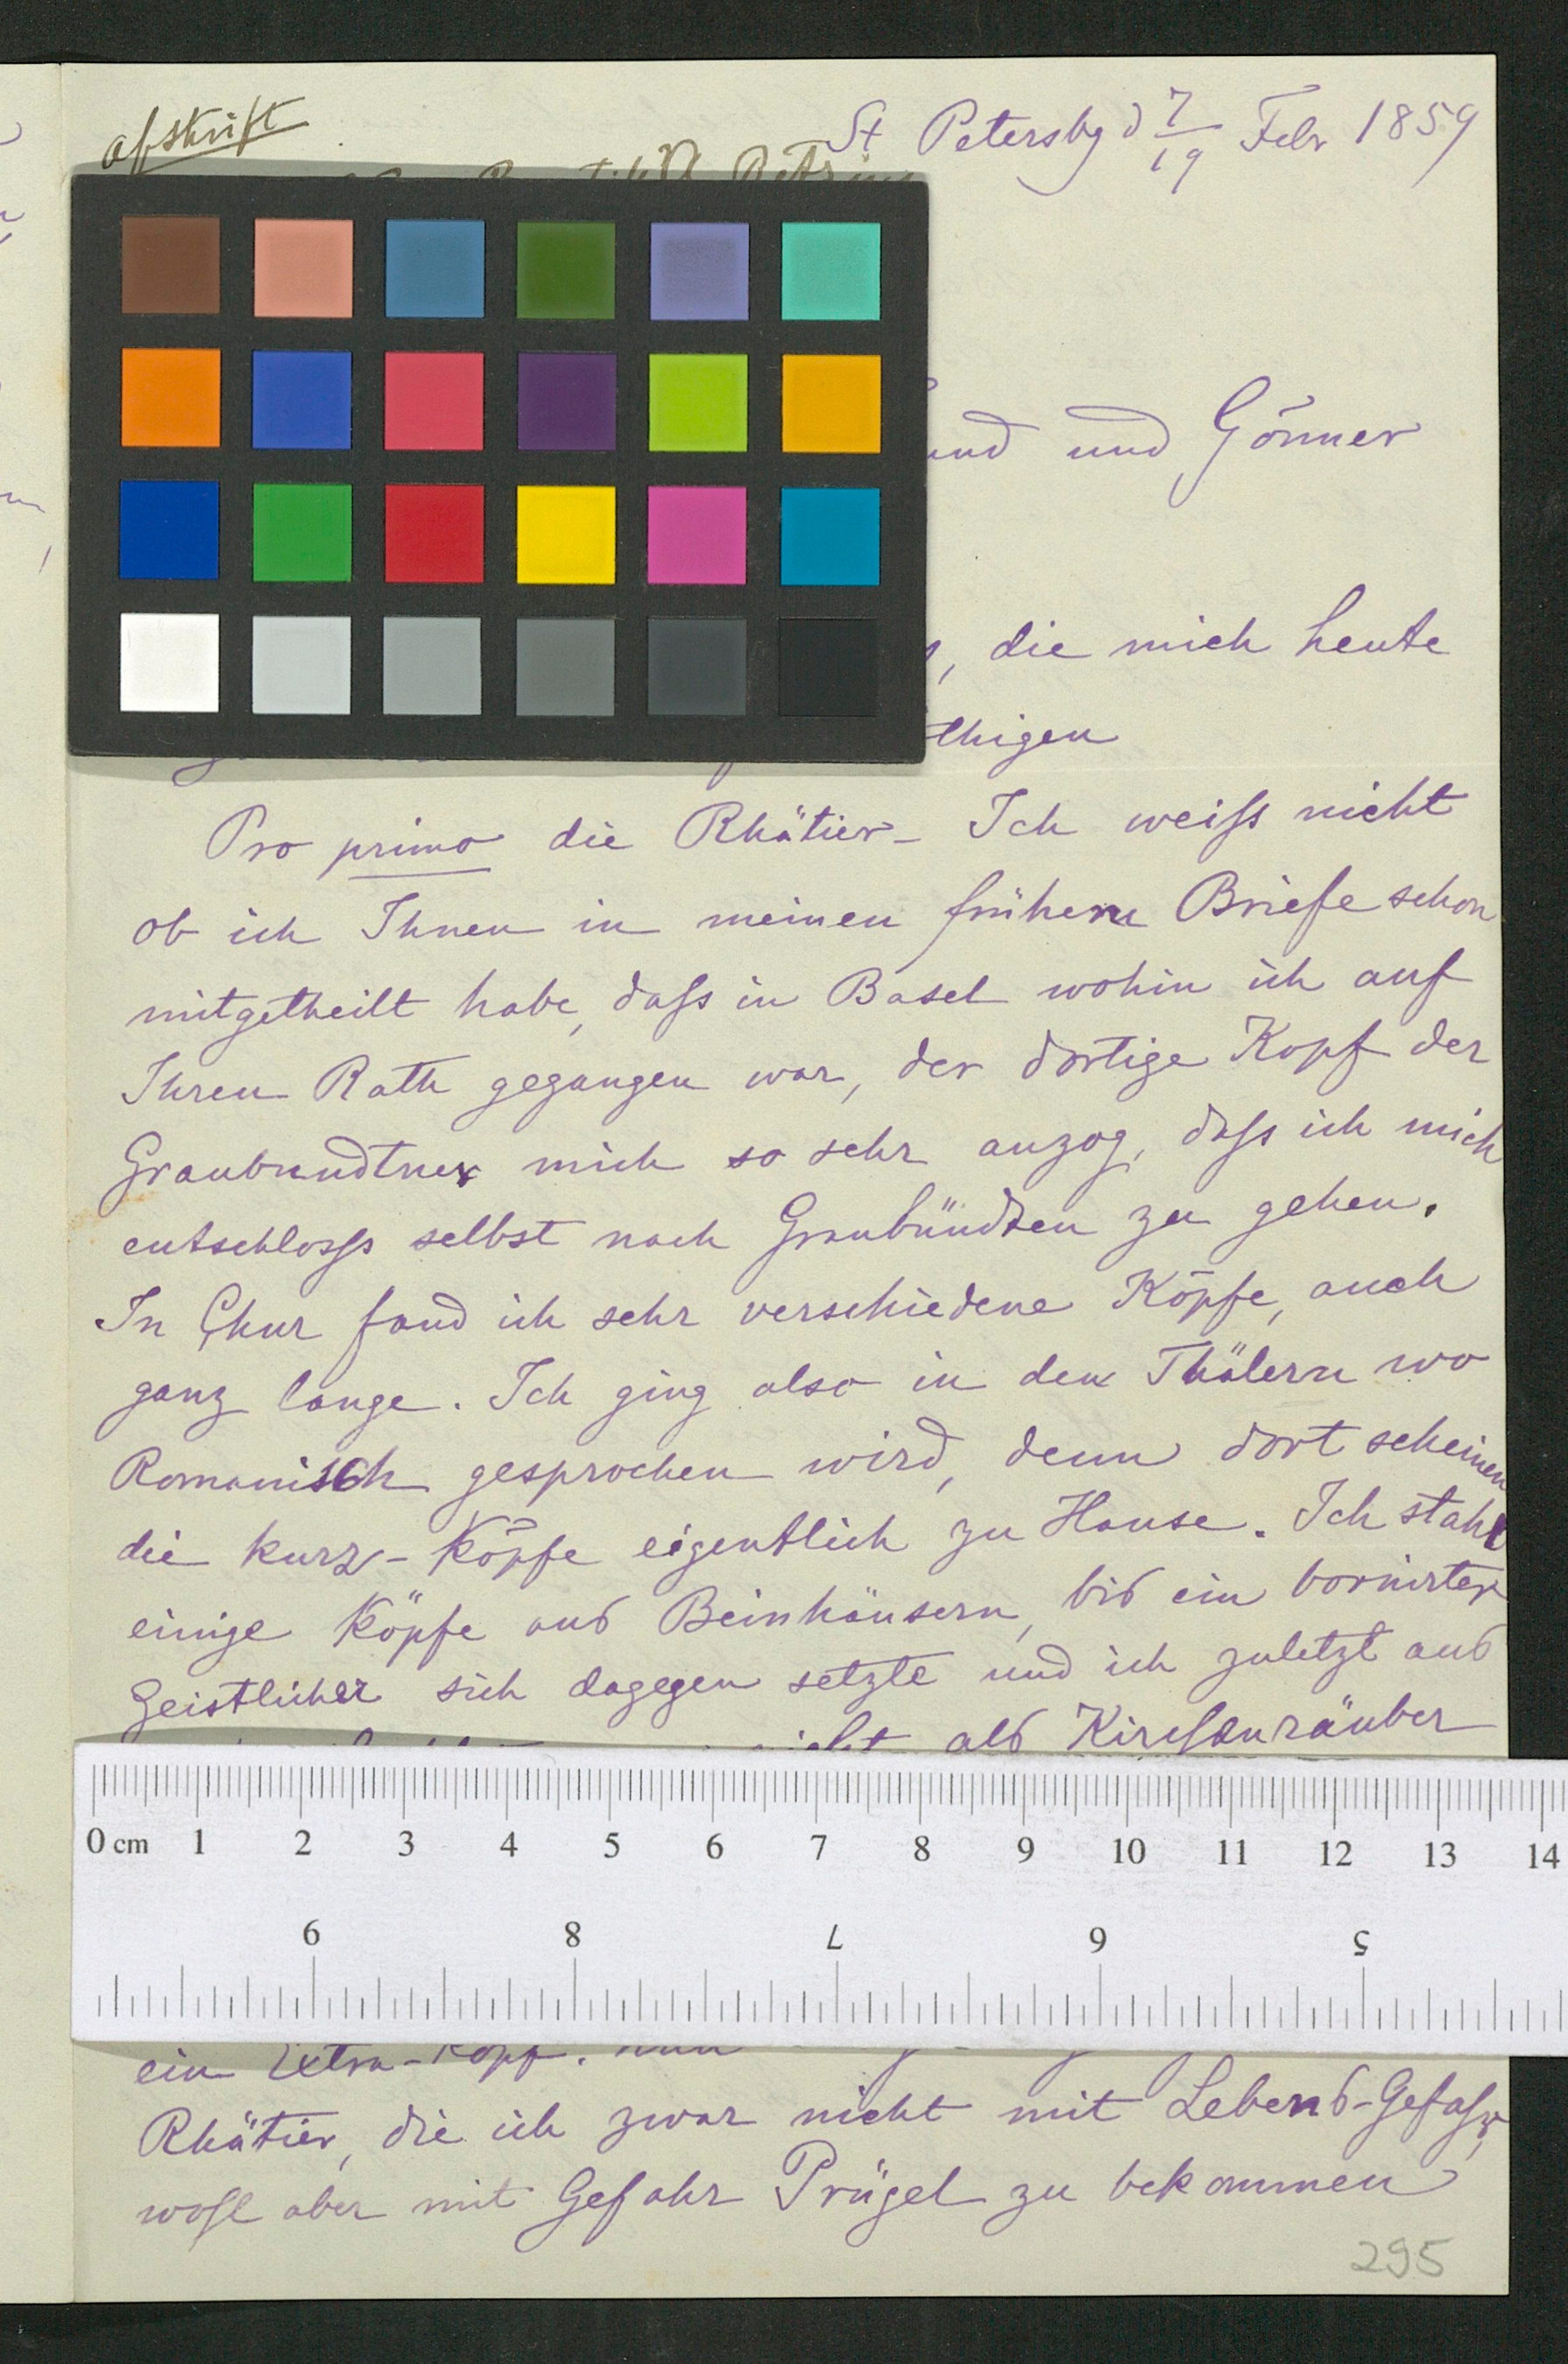 afskrift
St Petersbg d 7/19 Febr 1859
und Gönner
, die mich heute
thigen
Pro primo die Rhätier- Ich weiss nicht
ob ich Ihnen in meinen frühern Briefe schon
mitgetheilt habe, dass in Basel wohin ich auf
Ihren Rath gegangen war, der dortige Kopf der
Graubundtner mich so sehr anzog, dass ich mich
entschloss selbst nach Graubündten zu gehen.
In Chur fand ich sehr verschiedene Köpfe, auch
ganz lange. Ich ging also in den Thälern wo
Romanisch gesprochen wird, denn dort scheinen
die kurz-Köpfe eigentlich zu Hause. Ich stahl
einige Köpfe aus Beinhäusern, bis ein bornirter
Geistlicher sich dagegen setzte und ich zuletzt aus
nicht als Kirchenräuber
0 cm 1 2 3 4 5 6 7 8 9 10 11 12 13 14
9 8 7 6 5
ein Extra-Kopf.
Rhätier, die ich zwar nicht mit Lebens-Gefahr,
wohl aber mit Gefahr Prügel zu bekommen
295